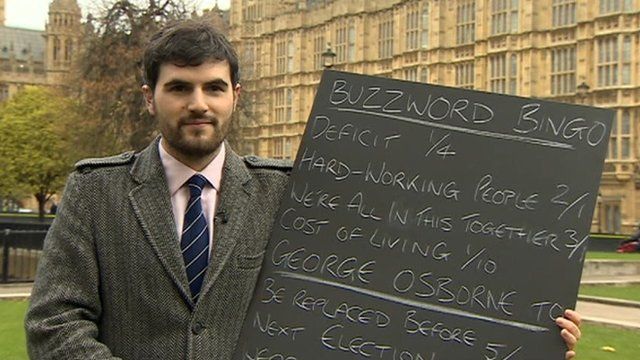 BUZZWORD BINGO
DEFICIT 1/4
HARD-WORKING PEOPLE 2/1
WE'RE ALL IN THIS TOGETHER 3/1
COST OF LIVING 1/10
GEORGE OSBORNE TO
BE REPLACED BEFORE 5/
NEXT ELECTION